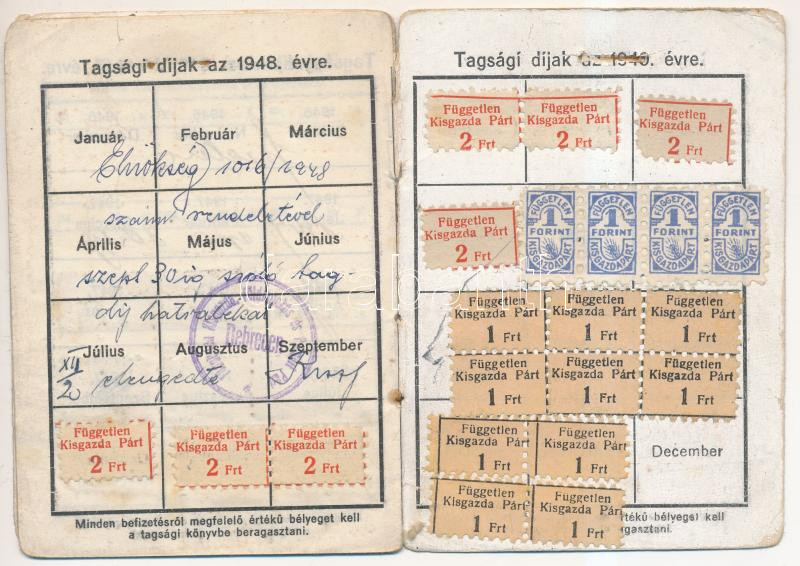 Tagsági díjak az 1948. évre.
Január Február Március
Elnökség 1016/1948
szám rendeletével
Április Május Június
szept 30ig szóló tag-
díj hátralékát
Július Augusztus Szeptember
XII
20 elengedte
Debrecen
Független
Kisgazda Párt
2 Frt
Független
Kisgazda Párt
2 Frt
Független
Kisgazda Párt
2 Frt
Minden befizetésről megfelelő értékű bélyeget kell
a tagsági könyvbe beragasztani.
Tagsági díjak az 1949. évre.
Független
Kisgazda Párt
2 Frt
Független
Kisgazda Párt
2 Frt
Független
Kisgazda Párt
2 Frt
Független
Kisgazda Párt
2 Frt
FÜGGETLEN
1
FORINT
KISGAZDAPÁRT
FÜGGETLEN
1
FORINT
KISGAZDAPÁRT
FÜGGETLEN
1
FORINT
KISGAZDAPÁRT
FÜGGETLEN
1
FORINT
KISGAZDAPÁRT
Független
Kisgazda Párt
1 Frt
Független
Kisgazda Párt
1 Frt
Független
Kisgazda Párt
1 Frt
Független
Kisgazda Párt
1 Frt
Független
Kisgazda Párt
1 Frt
Független
Kisgazda Párt
1 Frt
Független
Kisgazda Párt
1 Frt
Független
Kisgazda Párt
1 Frt
December
Független
Kisgazda Párt
1 Frt
Független
Kisgazda Párt
1 Frt
értékű bélyeget kell
ragasztani.